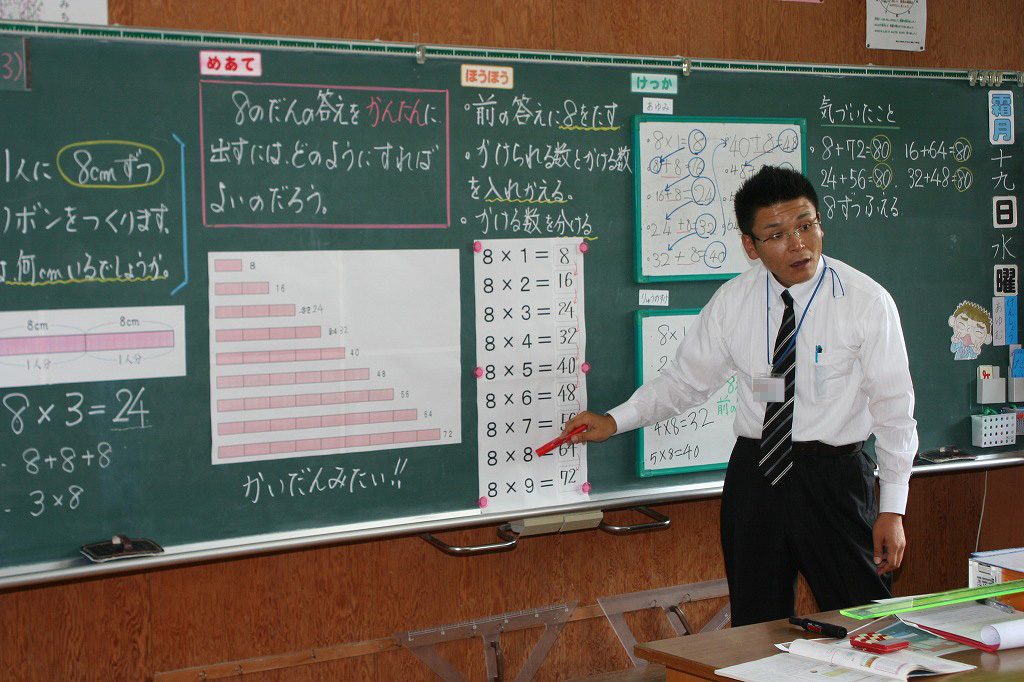 3)
1人に 8cmずつ
リボンをつくります。
何cmいるでしょうか。
8cm 8cm
1人分 1人分
8×3=24
8+8+8
3×8
めあて
8のだんの答えをかんたんに
出すには、どのようにすれば
よいのだろう。
8
16
24
32
40
48
56
64
72
かいだんみたい!!
ほうほう
・前の答えに8をたす
・かけられる数とかける数
を入れかえる。
・かける数を分ける
8×1=8
8×2=16
8×3=24
8×4=32
8×5=40
8×6=48
8×7=56
8×8=64
8×9=72
けっか
あゆみ
・8×1=8
8+8=16
・16+8=24
・24+8=32
・32+8=40
40+8=48
りょうのすけ
8×1
4×8=32
5×8=40
気づいたこと
・8+72=80 16+64=80
24+56=80. 32+48=80
・8ずつふえる
霜月
十九
日
水
曜
あゆむ